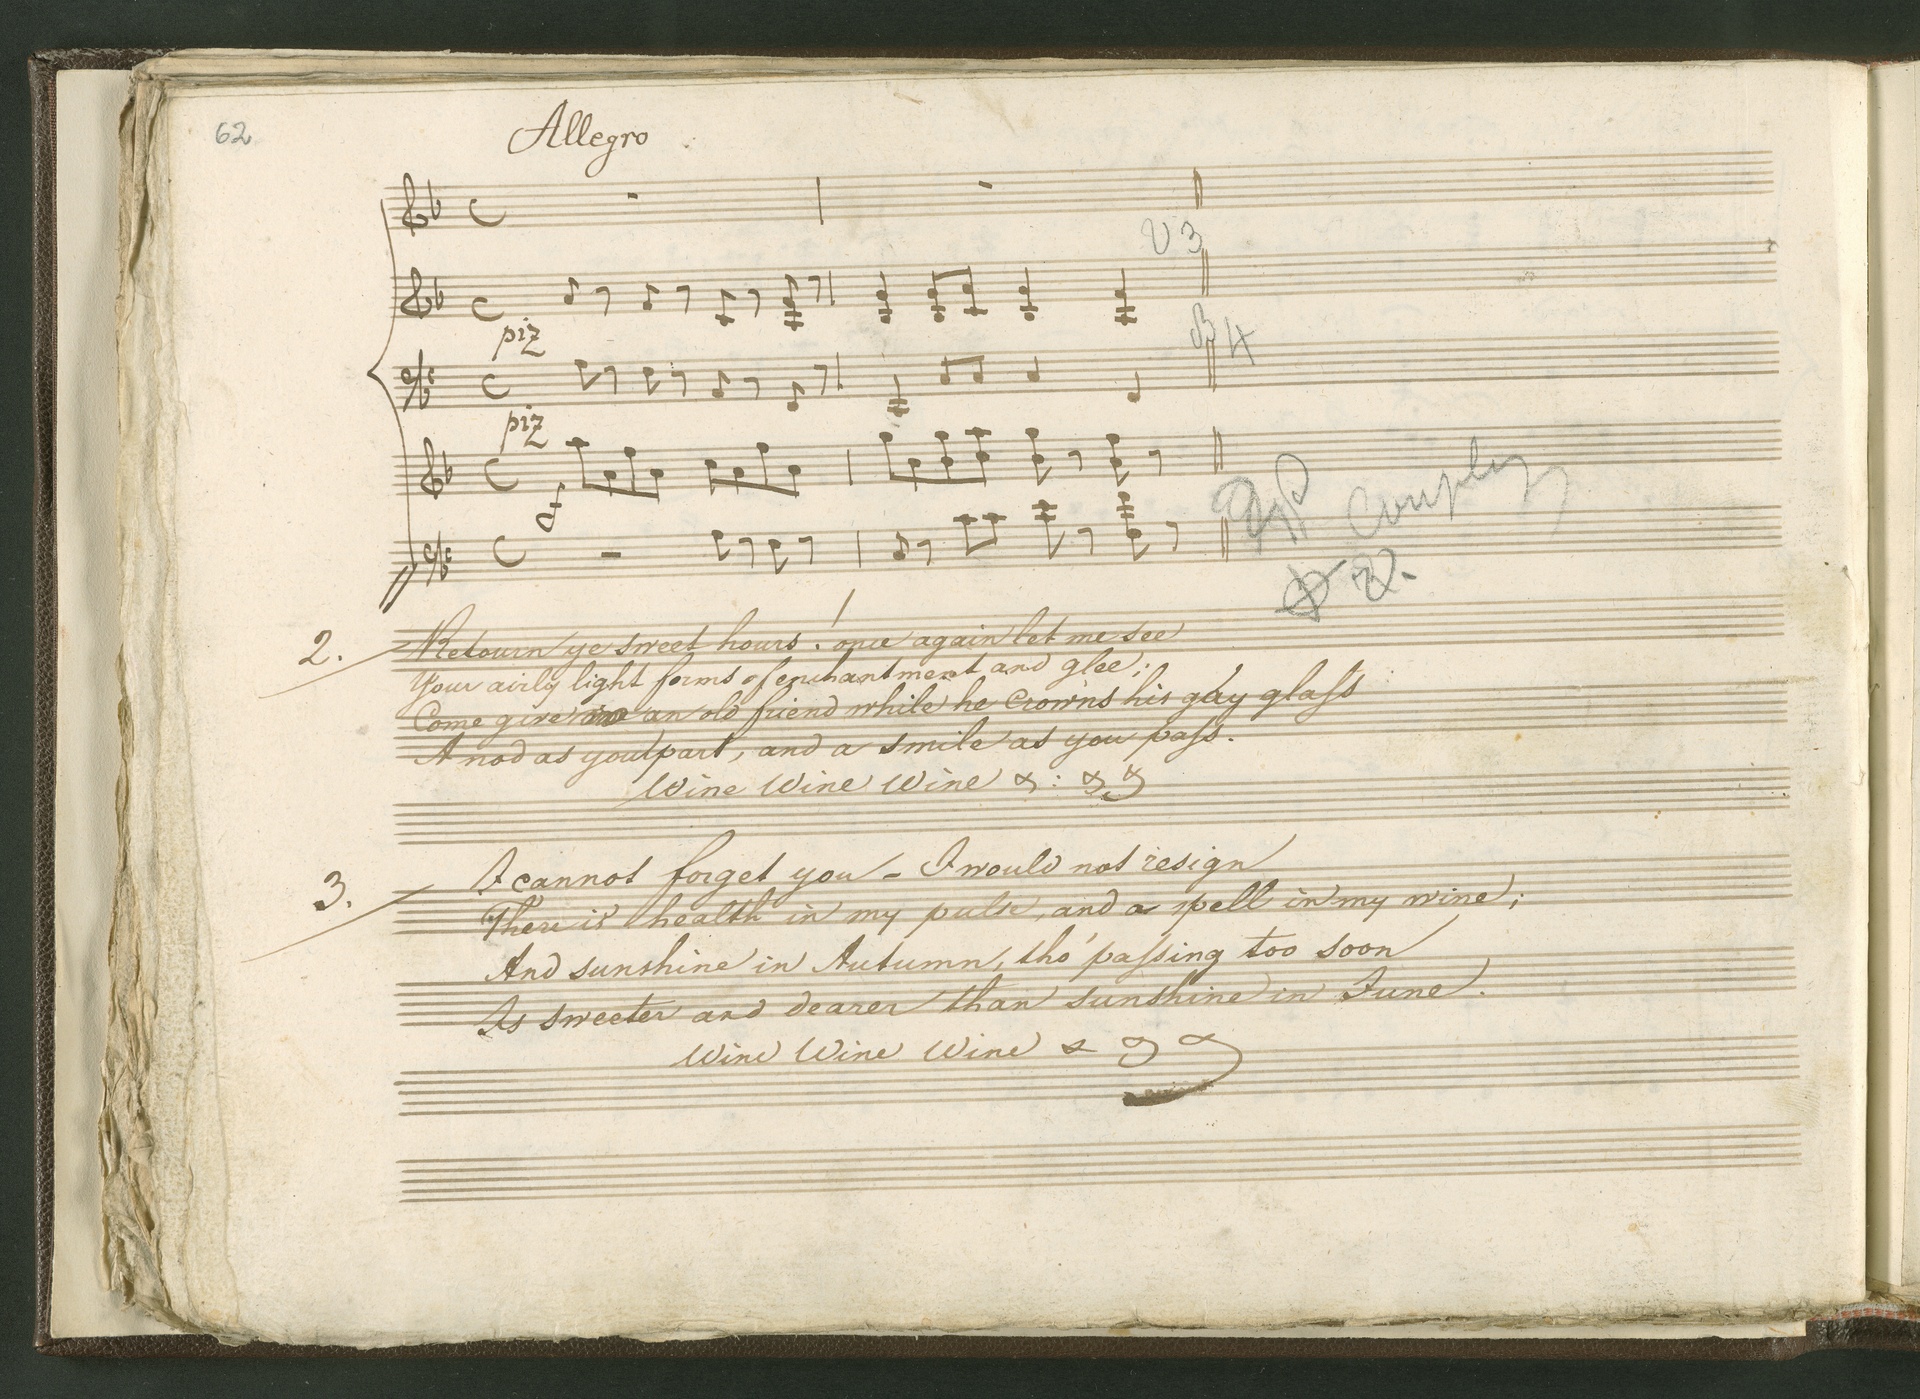 62
Allegro
V 3
piz
4
piz
f
2.
Return ye sweet hours! once again let me see
Your airly light forms of enchantment and glee;
Come give an old friend while he crowns his gay glass
A nod as you part, and a smile as you pass.
Wine Wine Wine &: &&
3.
I cannot forget you - I would not resign
There is health in my pulse, and a spell in my wine;
And sunshine in Autumn, tho' passing too soon
Is sweeter and dearer than sunshine in June.
Wine Wine Wine & & &